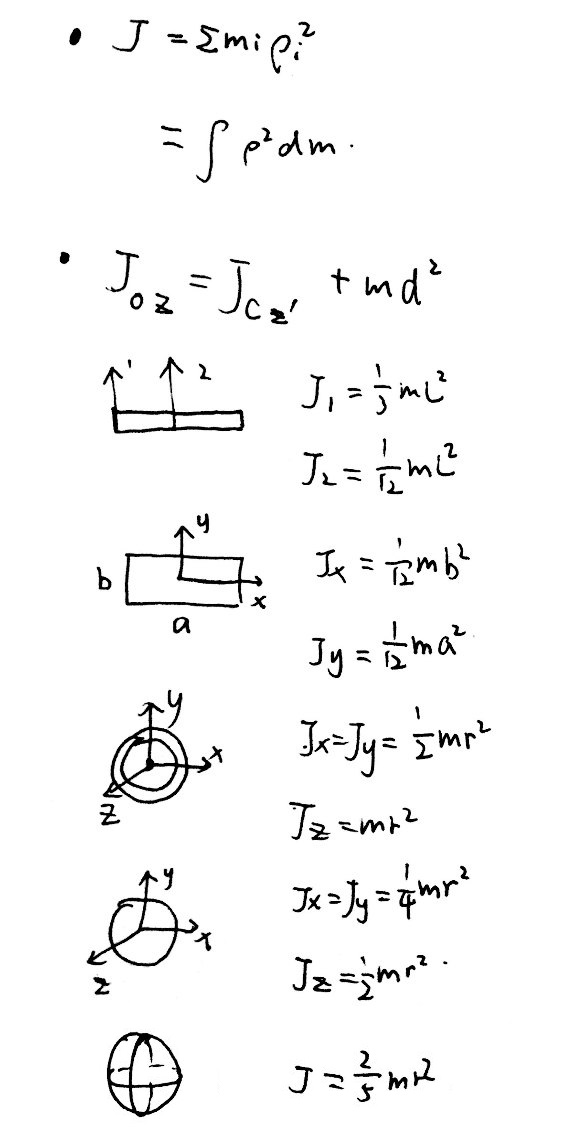 • J = Σmiρi²
= ∫ρ²dm.
• Joz = Jcz' + md²
1 2 J1 = 1/3 mL²
J2 = 1/12 mL²
y b x a Jx = 1/12 mb²
Jy = 1/12 ma²
y x z Jx=Jy= 1/2 mr²
Jz = mr²
y x z Jx=Jy= 1/4 mr²
Jz = 1/2 mr².
J = 2/5 mr²